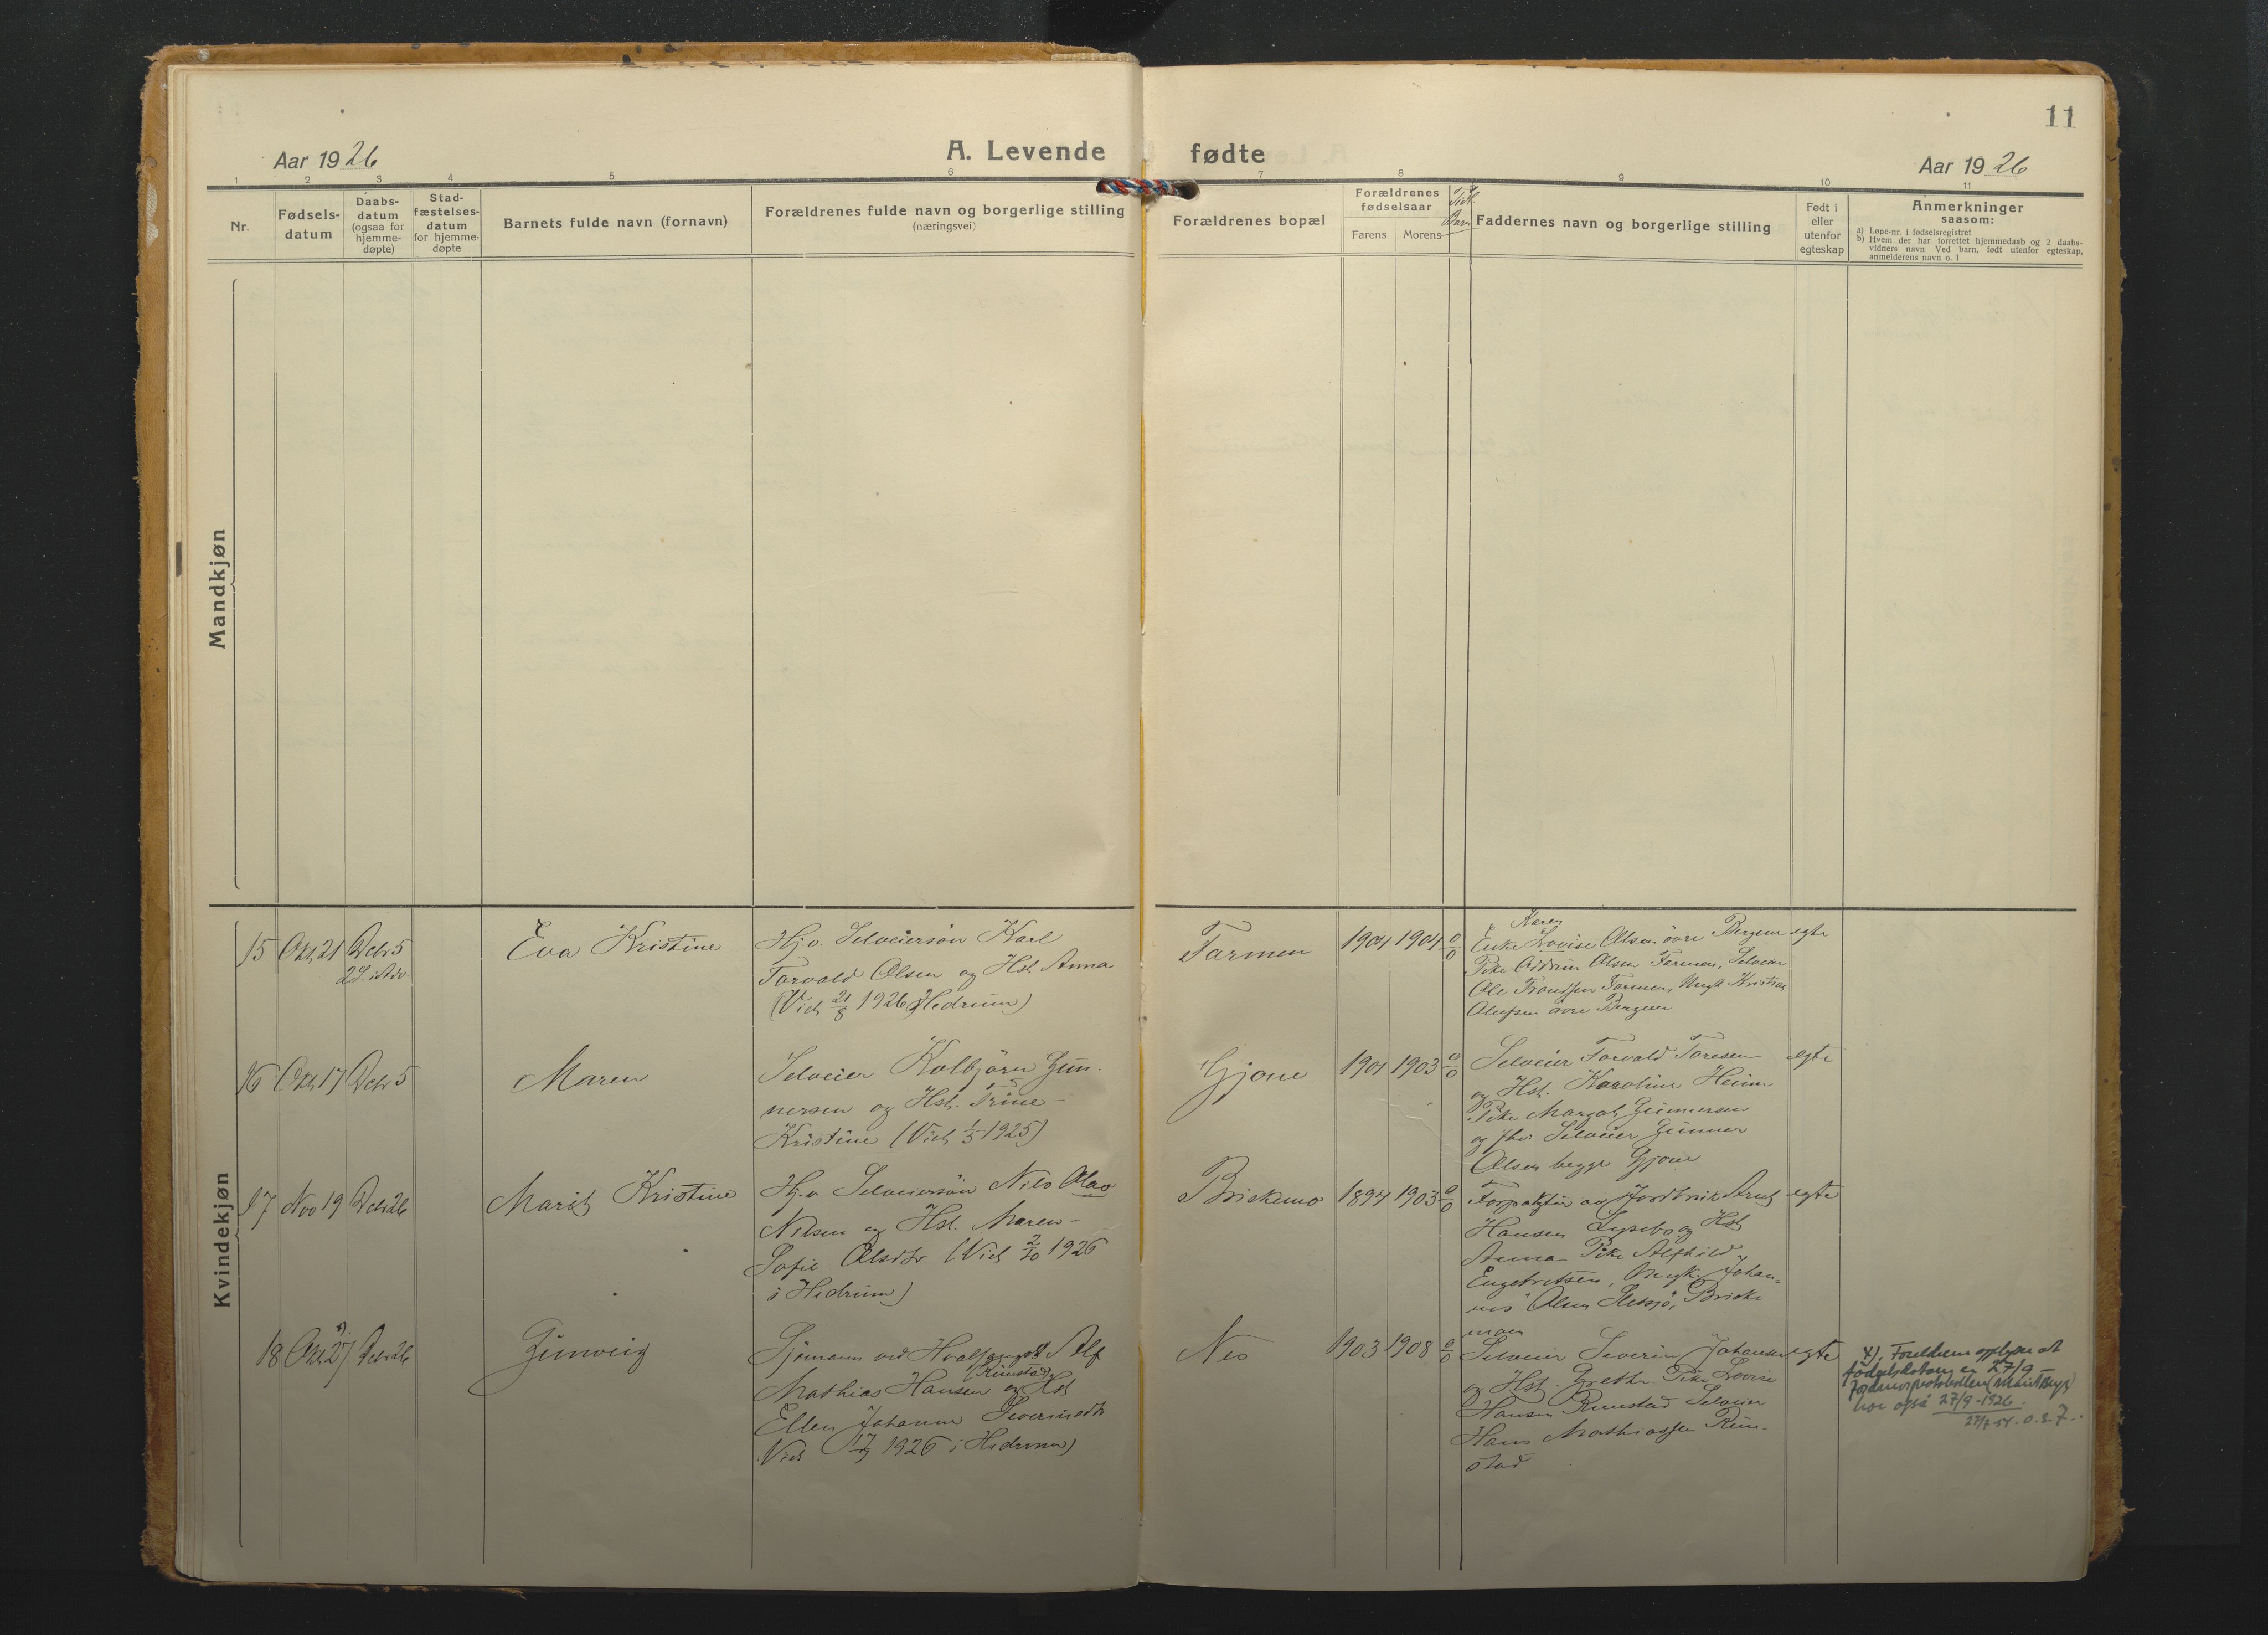 11
Aar 1926
A. Levende fødte
Aar 1926
1 2 3 4 5 6 7 8 9 10 11
Nr.
Fødsels-
datum
Daabs-
datum
(ogsaa for
hjemme-
døpte)
Stad-
fæstelses-
datum
for hjemme-
døpte
Barnets fulde navn (fornavn)
Forældrenes fulde navn og borgerlige stilling
(næringsvei)
Forældrenes bopæl
Forældrenes
fødselsaar
Farens Morens
Tidl.
Barn
Faddernes navn og borgerlige stilling
Født i
eller
utenfor
egteskap
Anmerkninger
saasom:
a) Løpe-nr. i fødselsregistret
b) Hvem der har forrettet hjemmedaab og 2 daabs-
vidners navn Ved barn, født utenfor egteskap,
anmelderens navn o. l
Mandkjøn
Kvindekjøn
15 Okt 21 Dcbr 5
2 S. i Adv.
Eva Kristine
Hj.v. Selveiersøn Karl
Torvald Olsen og Hst. Anna
(Viet 21/8 1926 i Hedrum)
Farmen
1904 1904 0/0
Karen
Enke Lovise Olsen øvre Bergem
Pike Oddrun Olsen Farmen, Selveier
Ole Trondsen Farmen, Ungk Kristian
Olufsen øvre Bergem
egte
16 Okt 17 Dcbr 5
Maren
Selveier Kolbjørn Gun-
nersen og Hst. Trine-
Kristine (Viet 1/5 1925)
Gjone
1901 1903 0/0
Selveier Torvald Toresen
og Hst. Karoline Heum
Pike Margot Gunnersen
og fhv. Selveier Gunner
Olsen begge Gjone
egte
17 Nov 19 Dcbr 26
Marit Kristine
Hj.v. Selveiersøn Nils Olav
Nilsen og Hst. Maren-
Sofie Olsdtr (Viet 2/10 1926
i Hedrum)
Briskemo
1894 1903 0/0
Forpakter av Jordbruk Arnt
Hansen Lysebo og Hst
Anna Pike Alfhild
Engebretsen, Ungk. Johan-
nes Olsen, Briske
moen
egte
18 Okt 27 x) Dcbr 26
Gunveig
Sjømann ved Hvalfangst Alf
Mathias Hansen (Rimstad) og Hst
Ellen Johanne Severinsdtr
Viet 17/7 1926 i Hedrum)
Nes
1903 1908 0/0
Selveier Severin Johansen
og Hst. Grethe Pike Lovise
Hansen Rimstad Selveier
Hans Mathiassen Rim-
stad
egte
x). Foreldrene opplyser at
fødselsdatoen er 27/9 -
Jordmorprotokollen (Marit Bugs)
har også 27/9 - 1926.